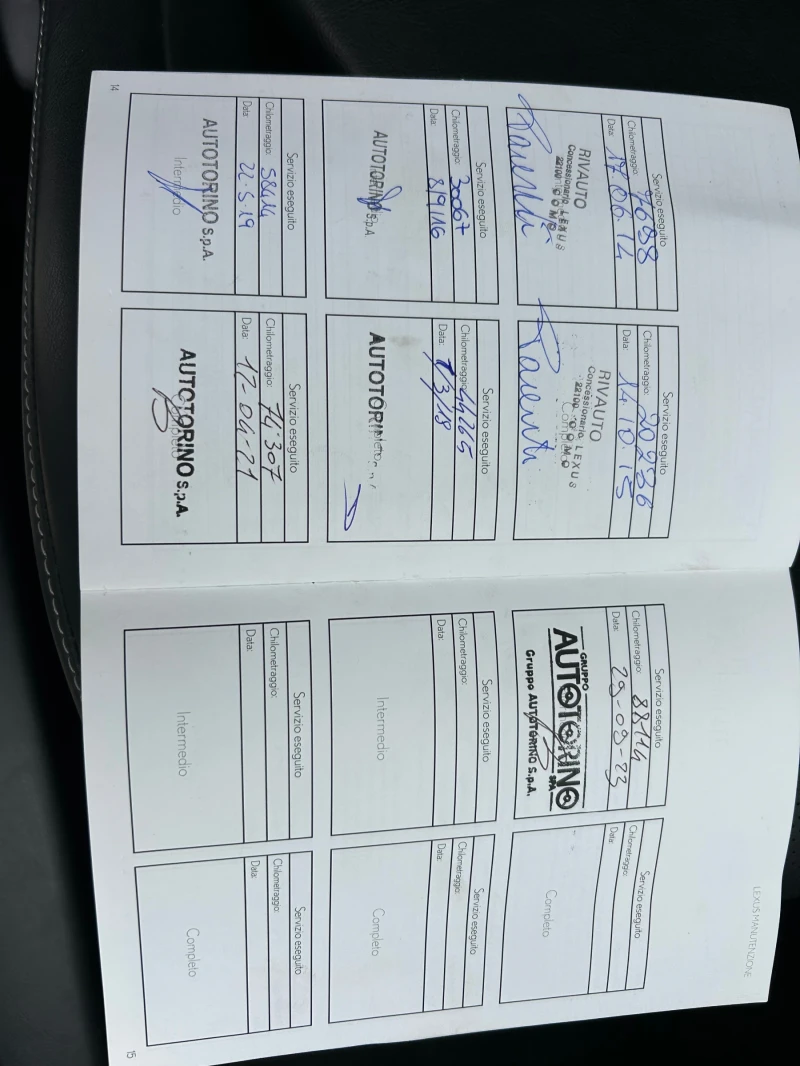 LEXUS MANUTENZIONE
Servizio eseguito
Chilometraggio:
Data: 17.06.14
RIVAUTO
Concessionaria LEXUS
22100 COMO
Servizio eseguito
Chilometraggio:
Data: 14.10.15
RIVAUTO
Concessionaria LEXUS
22100 COMO
Completo
Servizio eseguito
Chilometraggio: 30067
Data: 8/9/16
AUTOTORINO S.p.A.
Servizio eseguito
Chilometraggio: 44265
Data: 7/3/18
AUTOTORIN
Completo
Servizio eseguito
Chilometraggio: 58414
Data: 22.5.19
AUTOTORINO S.p.A.
Intermedio
Servizio eseguito
Chilometraggio: 74.307
Data: 12-04-21
AUTOTORINO S.p.A.
Completo
14
Servizio eseguito
Chilometraggio: 88114
Data: 29-09-23
GRUPPO
AUTOTORINO
SPA
Gruppo AUTOTORINO S.p.A.
Servizio eseguito
Chilometraggio:
Data:
Completo
Servizio eseguito
Chilometraggio:
Data:
Intermedio
Servizio eseguito
Chilometraggio:
Data:
Completo
Servizio eseguito
Chilometraggio:
Data:
Intermedio
Servizio eseguito
Chilometraggio:
Data:
Completo
15